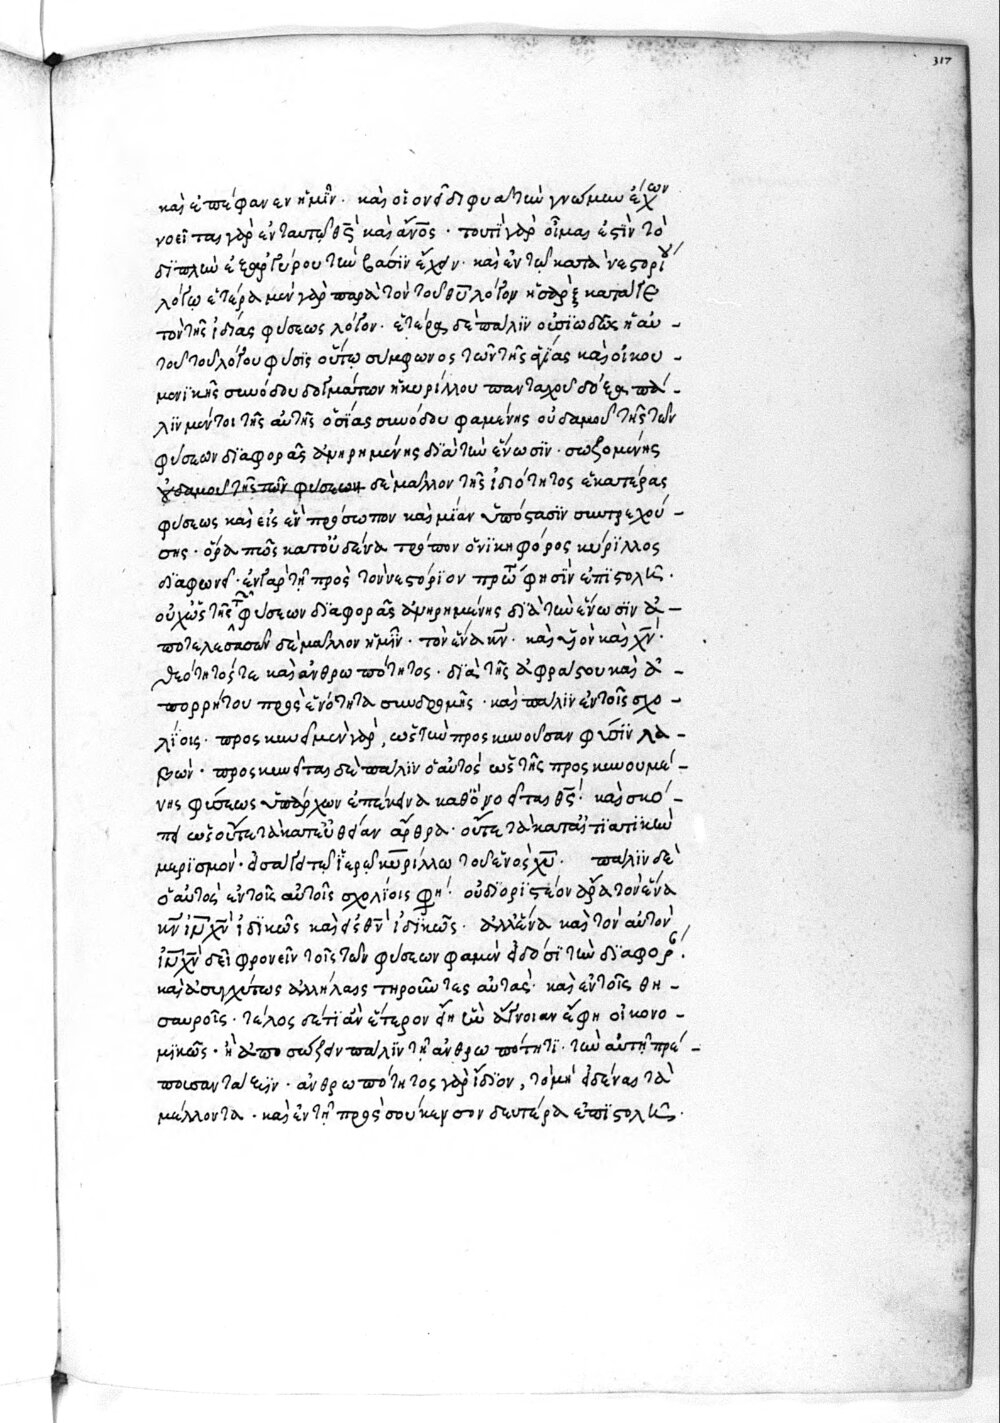 317
καὶ ἐπέφανεν ἡμῖν · καὶ οἱονεὶ διφυᾶ τὴν γνώμην ἔχων
νοεῖται γὰρ ἐν ταυτῷ θς καὶ ἄνος · τουτὶ γὰρ οἶμαι ἐστὶν τὸ
διπλῆν ἐξ ἀργύρου τὴν βάσιν ἔχειν · καὶ ἐν τῷ κατὰ νεστορίου
λόγῳ ἑτέρα μὲν γὰρ παρὰ τὸν τοῦ θυ λόγον ἡ σὰρξ κατά γε
τὸν τῆς ἰδίας φύσεως λόγον · ἑτέρα δὲ πάλιν οὐσιωδῶς ἡ αὐ-
τοῦ τοῦ λόγου φύσις οὕτω σύμφωνος τῶν τῆς ἁγίας καὶ οἰκου-
μενικῆς συνόδου δογμάτων ἡ κυρίλλου πανταχοῦ δόξα πά-
λιν μέντοι τῆς αὐτῆς ὁσίας συνόδου φαμένης οὐδαμοῦ τῆς τῶν
φύσεων διαφορᾶς ἀνῃρημένης διὰ τὴν ἕνωσιν · σωζομένης
οὐδαμοῦ τῆς τῶν φύσεων δὲ μᾶλλον τῆς ἰδιότητος ἑκατέρας
φύσεως καὶ εἰς ἓν πρόσωπον καὶ μίαν ὑπόστασιν συντρεχού-
σης · ὅρα πῶς κατ' οὐδένα τρόπον ὁ νικηφόρος κύριλλος
διαφωνεῖ · ἐν γὰρ τῇ πρὸς τὸν νεστόριον πρώτῃ φησὶν ἐπιστολῇ ·
οὐχ ὡς τῆς τῶν φύσεων διαφορᾶς ἀνῃρημένης διὰ τὴν ἕνωσιν ἀ-
ποτελεσασῶν δὲ μᾶλλον ἡμῖν · τὸν ἕνα κν · καὶ υἱὸν καὶ χν ·
θεότητός τε καὶ ἀνθρωπότητος · διὰ τῆς ἀφράστου καὶ ἀ-
πορρήτου πρὸς ἑνότητα συνδρομῆς · καὶ πάλιν ἐν τοῖς σχο-
λίοις · προσκυνεῖ μὲν γὰρ, ὡς τὴν προσκυνοῦσαν φύσιν λα-
βών · προσκυνεῖται δὲ πάλιν ὁ αὐτὸς ὡς τῆς προσκυνουμέ-
νης φύσεως ὑπάρχων ἐπέκεινα καθὸ νοεῖται θς · καὶ σκό-
πει ὡς οὔτε τὰ κατ' εὐθεῖαν ἄρθρα · οὔτε τὰ κατ' αἰτιατικὴν
μερισμὸν · εἰσάγει τῷ ἱερῷ κυρίλλω τοῦ ἑνὸς χυ · πάλιν δὲ
ὁ αὐτὸς ἐν τοῖς αὐτοῖς σχολίοις φη · οὐ διοριστέον ἄρα τὸν ἕνα
κν ιν χν ἰδικῶς καὶ εἰς θν ἰδικῶς · ἀλλ' ἕνα καὶ τὸν αὐτὸν
ιν χν δεῖ φρονεῖν τοῖς τῶν φύσεων φαμὲν εἰδόσι τὴν διαφοράν ·
καὶ ἀσυγχύτως ἀλλήλαις τηροῦντες αὐτάς · καὶ ἐν τοῖς θη-
σαυροῖς · τέλος δέ τι ἂν ἕτερον εἴη τὴν ἄγνοιαν ἔφη οἰκονο-
μικῶς · ἢ ἀποσώζειν πάλιν τῇ ἀνθρωπότητι · τὴν αὐτῇ πρέ-
πουσαν τάξιν · ἀνθρωπότητος γὰρ ἴδιον, τὸ μὴ εἰδέναι τὰ
μέλλοντα · καὶ ἐν τῇ πρὸς σούκενσον δευτέρα ἐπιστολῇ ·